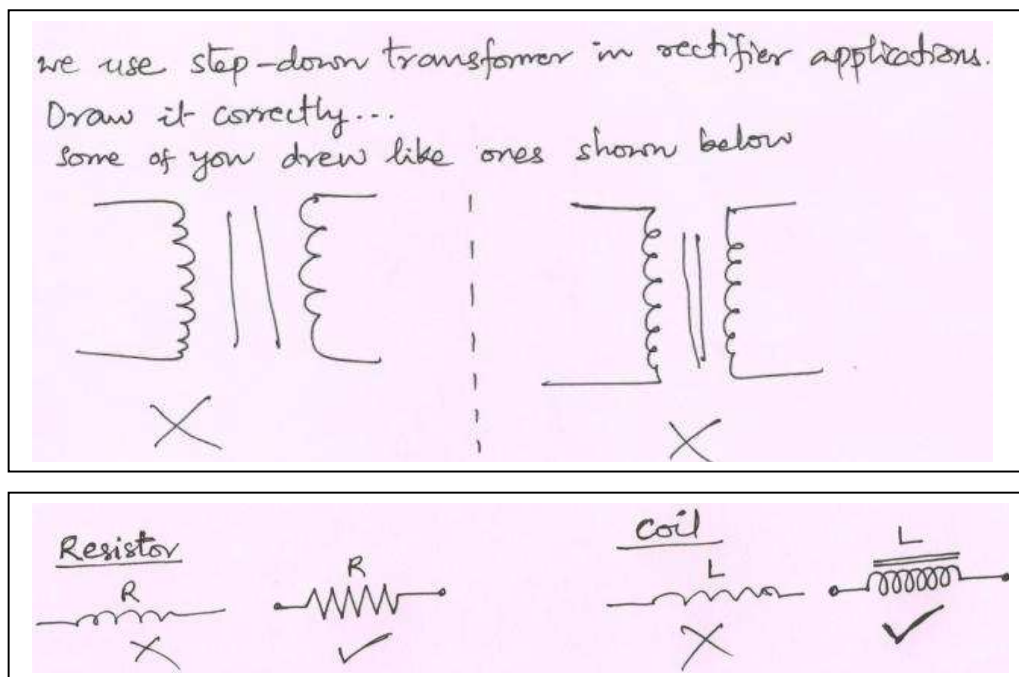 we use step-down transformer in rectifier applications.
Draw it correctly...
Some of you drew like ones shown below
Resistor
R
R
Coil
L
L